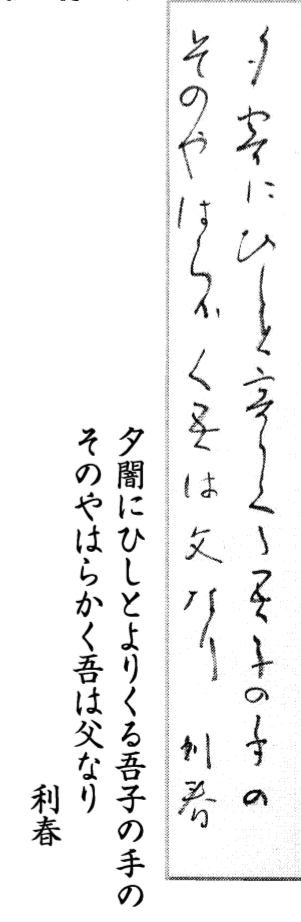 夕闇にひしと寄りくる吾子の手の
そのやはらかく吾は父なり 利春
夕闇にひしとよりくる吾子の手の
そのやはらかく吾は父なり
利春